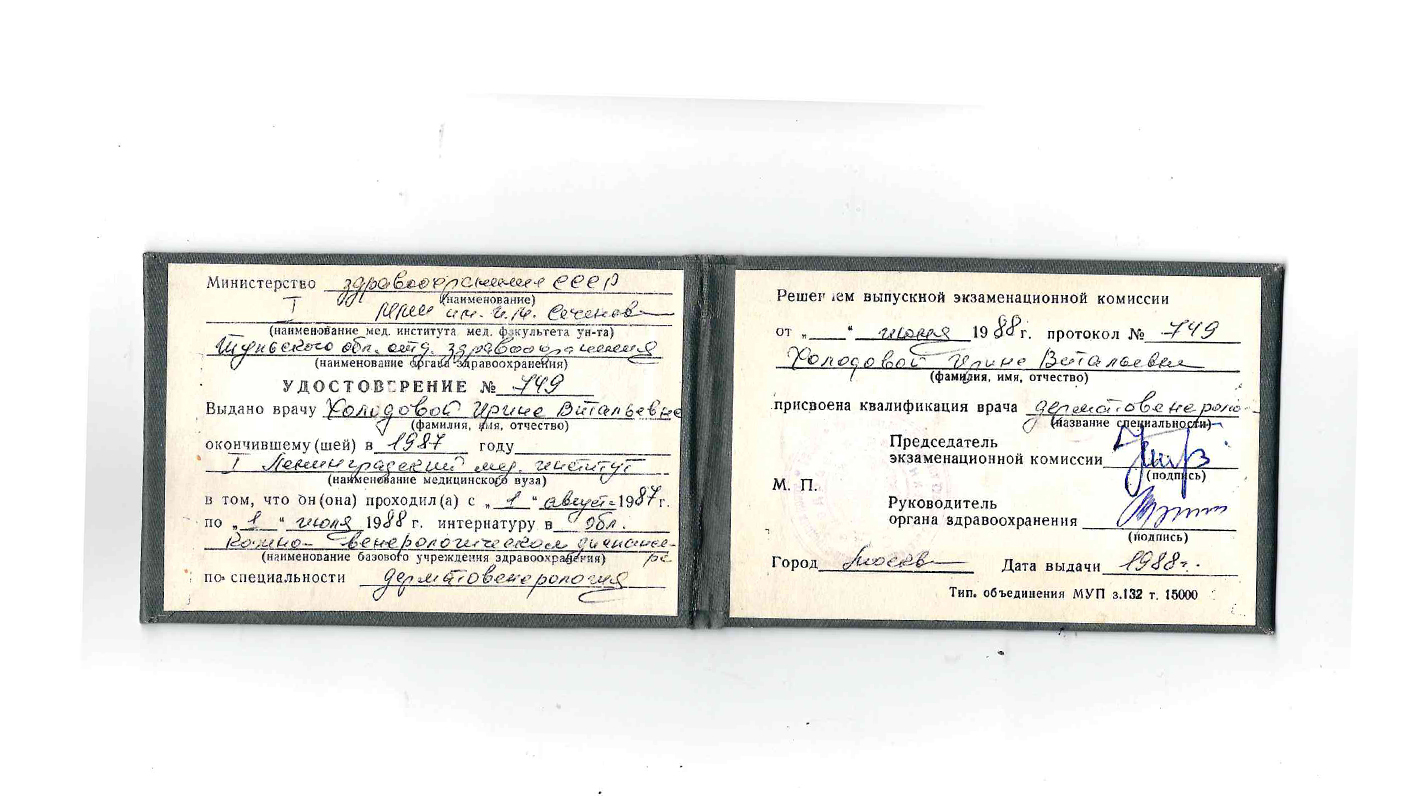 Министерство здравоохранения СССР
(наименование)
I ММИ им. И.М. Сеченова
(наименование мед. института мед. факультета ун-та)
Тульского обл. отд. здравоохранения
(наименование органа здравоохранения)
УДОСТОВЕРЕНИЕ № 749
Выдано врачу Холодовой Ирине Витальевне
(фамилия, имя, отчество)
окончившему (шей) в 1987 году
I Ленинградский мед. институт
(наименование медицинского вуза)
в том, что он(она) проходил(а) с „ 1 “ август 1987 г.
по „ 1 “ июля 1988 г. интернатуру в Обл.
кожно-венерологическом диспансере
(наименование базового учреждения здравоохранения)
по специальности дерматовенерология
Решением выпускной экзаменационной комиссии
от „ “ июля 1988 г. протокол № 749
Холодовой Ирине Витальевне
(фамилия, имя, отчество)
присвоена квалификация врача дерматовенероло-
(название специальности)
Председатель
экзаменационной комиссии
(подпись)
М. П.
Руководитель
органа здравоохранения
(подпись)
Город Москва Дата выдачи 1988 г.
Тип. объединения МУП з.132 т. 15000